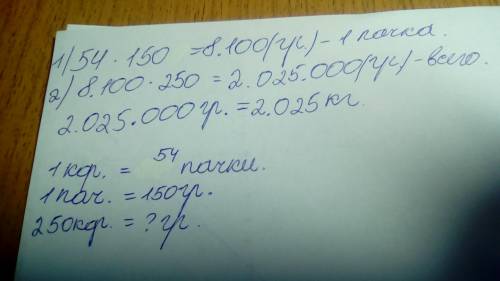 1) 54 · 150 = 8.100 (гр) - 1 пачка.
2) 8.100 · 250 = 2.025.000 (гр) - всего.
2.025.000 гр. = 2.025 кг.
1 кор. = 54 пачки.
1 пач. = 150 гр.
250 кор. = ? гр.